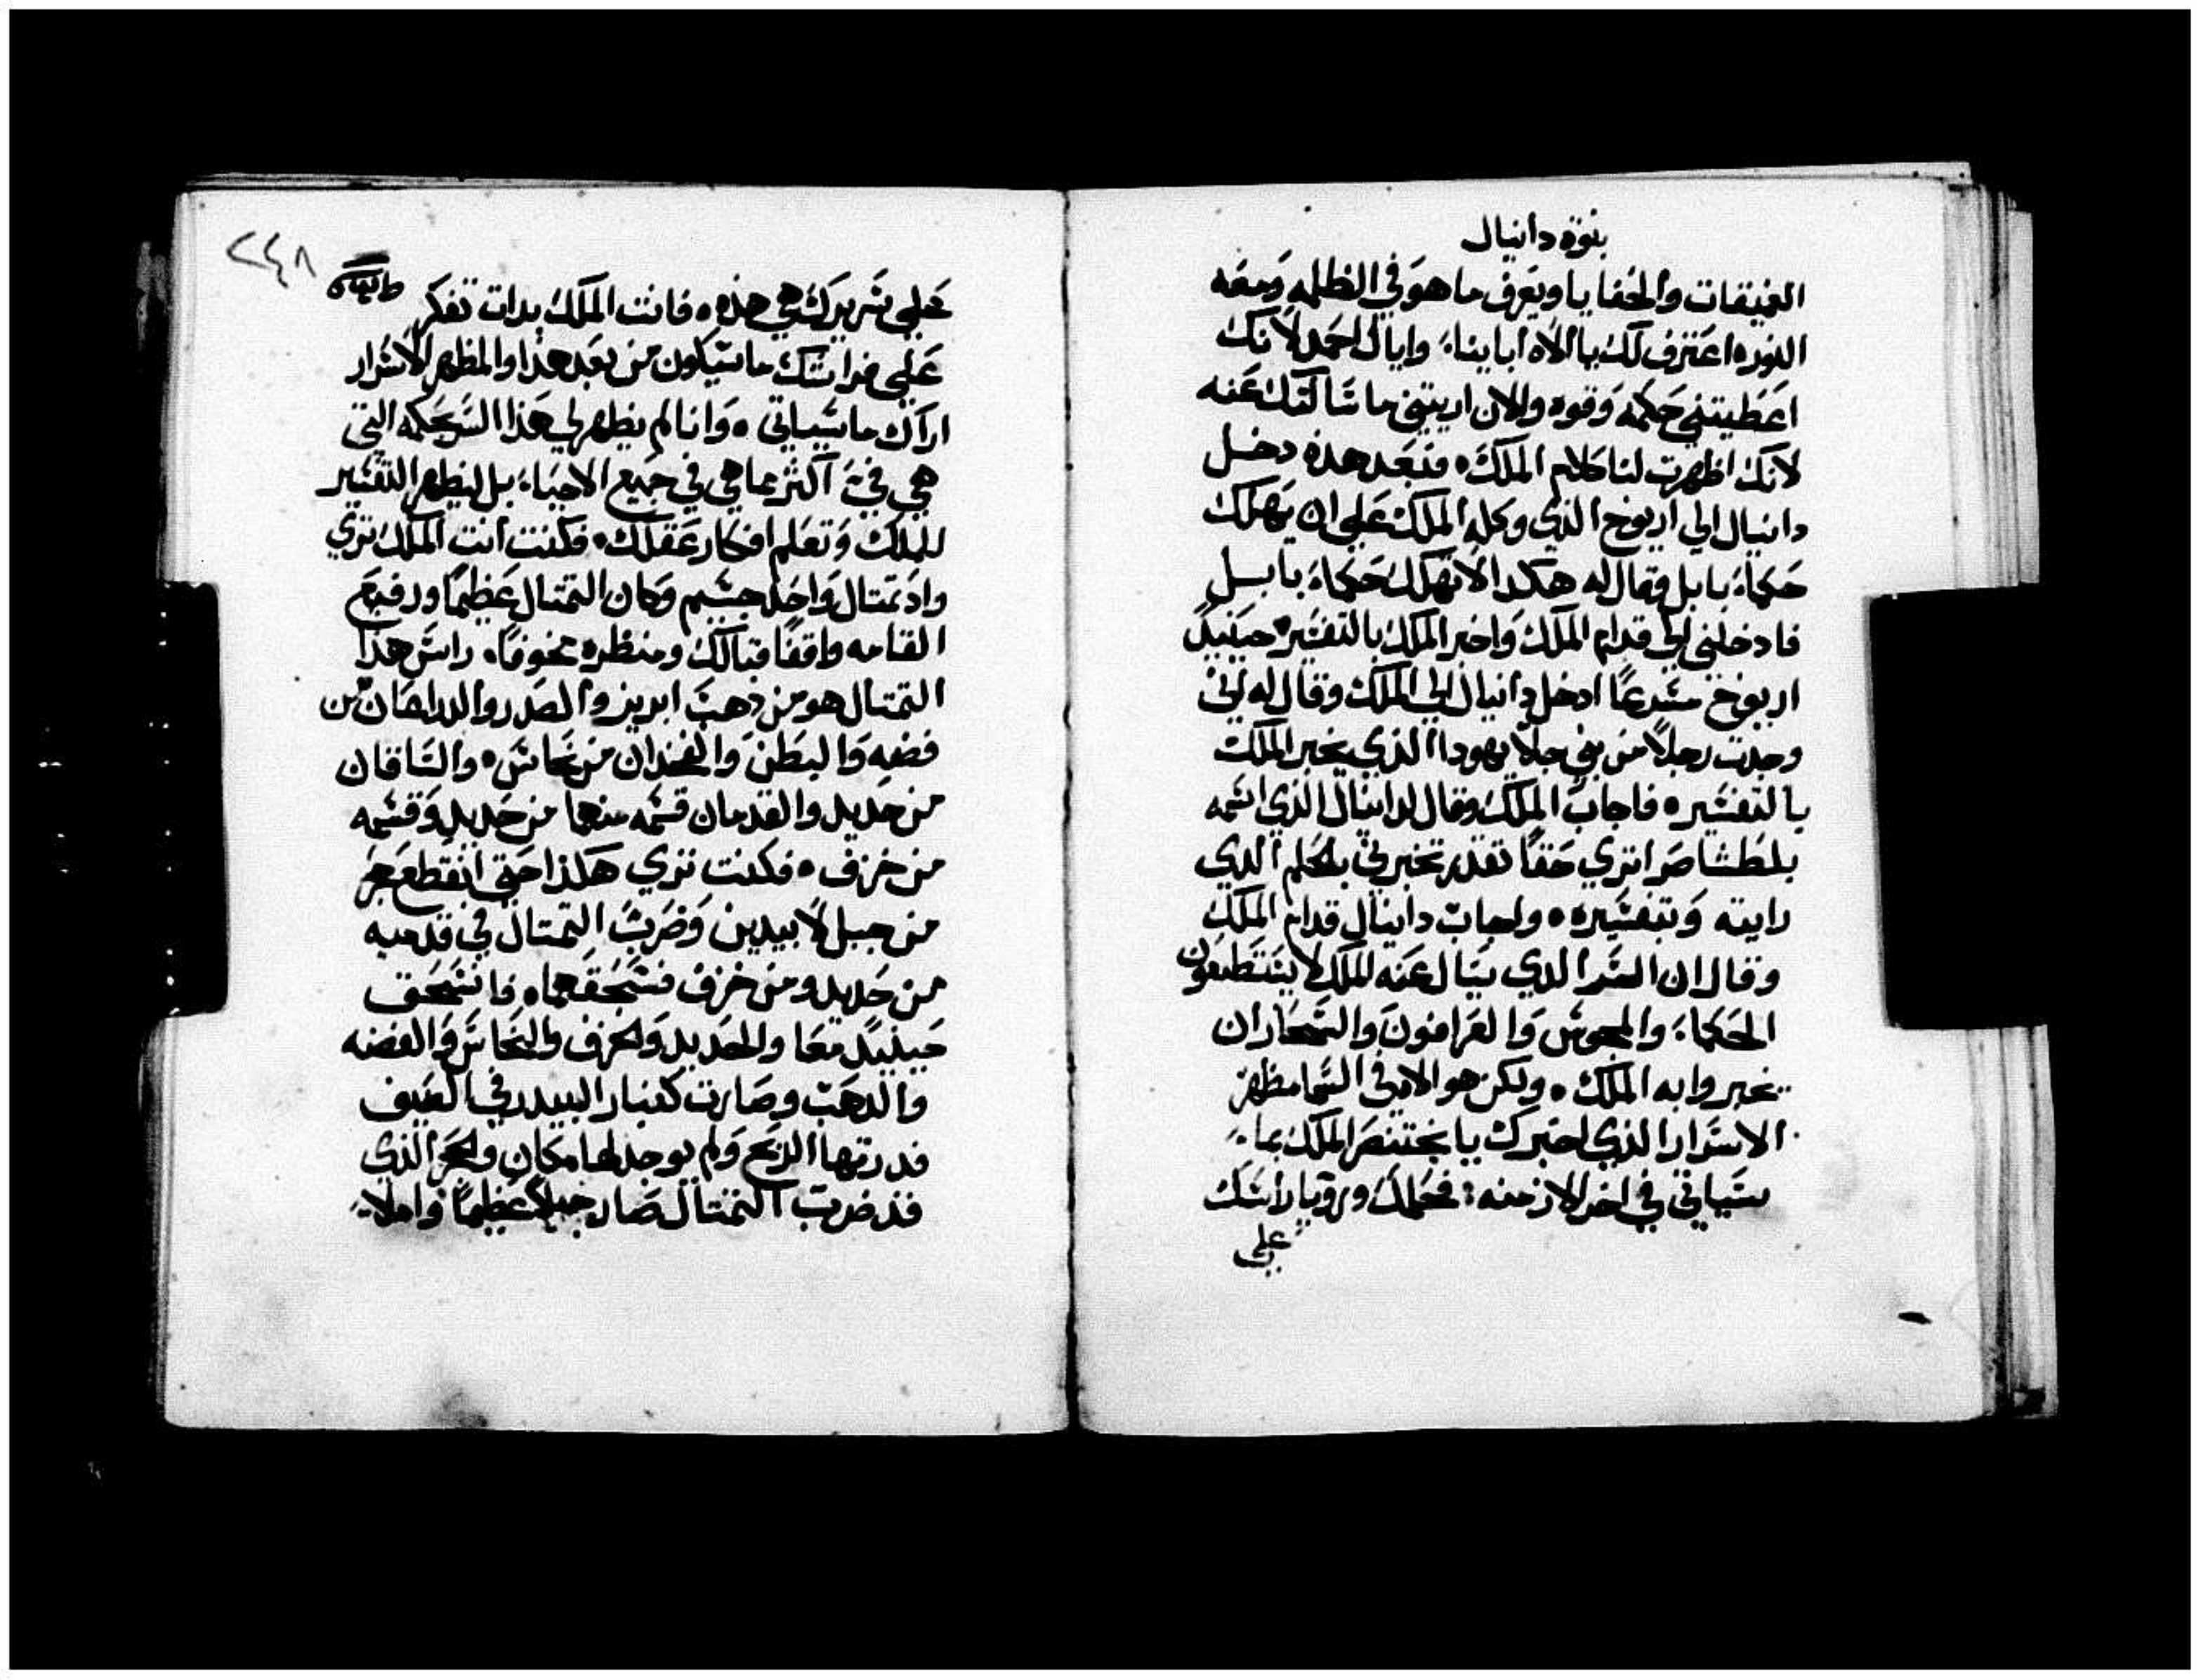 بنوة دانيال
العميقات والخفايا ويعرف ما هو في الظلمه ومعه
النور ه اعترف لك يا الاه اباينا، واياك احمد لانك
اعطيتني حكمه وقوه والان اريتني ما سالتك عنه
لانك اظهرت لنا كلام الملك ه فبعد هذه دخل
دانيال الي اريوخ الذي وكله الملك علي ان يهلك
حكماء بابل وقال له هكدا لا تهلك حكماء بابل
فادخلني الي قدام الملك واخبر الملك بالتفسير ه حينيدً
اريوخ مسرعًا ادخل دانيال الي الملك وقال له اني
وجدت رجلاً من بني جلا يهودا الذي يخبر الملك
بالتفسير ه فاجاب الملك وقال لدانيال الذي اسمه
بلطشاصر اتري حقًا تقدر تخبرني بالحلم الدي
رايته وبتفسيره ه واجاب دانيال قدام الملك
وقال ان السر الدي يسال عنه الملك لا يستطيعون
الحكماء والمجوس والعرافون والسحاران
يخبروا به الملك ه ولكن هو الاه في السما مظهر
الاسرار الذي اخبرك يا بختنصر الملك بما
سياتي في اخر الازمنه : فحلمك ورويا راسك
علي
٢٤٨
علي سريرك هي هذه ه فانت الملك بدات تفكر
علي فراشك ما سيكون من بعد هذا والمظهر الاسرار
اراك ما سياتي ه وانا لم يظهر لي هذا السر بحكمه التي
هي فيَّ اكثر مما هي في جميع الاحياء، بل ليظهر التفسير
للملك وتعلم افكار عقلك ه فكنت انت الملك تري
واد تمتال واحد جسيم وكان التمتال عظيمًا ورفيع
القامه واقفًا قبالك ومنظره مخوفًا، راس هذا
التمتال هو من دهب ابريز والصدر والدراعان من
فضه والبطن والفخدان من نحاس ه والساقان
من حديد والقدمان قسمه منهما من حديد وقسمه
من خزف ه فكنت تري هكذا حتي انقطع حجر
من جبل لا بيدين وضرب التمتال في قدميه
من حديد ومن خزف فسحقهما ه فانسحق
حينيدً معا والحديد والخزف والنحاس والفضه
والدهب وصارت كغبار البيدر في الصيف
فدرتها الريح ولم يوجد لها مكان والحجر الذي
قد ضرب التمتال صار جبلاً عظيمًا واملا